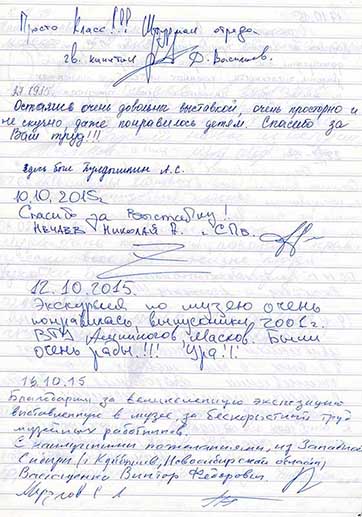 Просто класс!!! Штурман отряда
гв. капитан Ф. Васильев.
2015.
Остались очень довольны выставкой, очень просторно и
не скучно, даже понравилось детям. Спасибо за
Ваш труд!!!
Здесь был А.С.
10.10.2015г.
Спасибо за выставку!
Нечаев Николай В. г. СПб.
12.10.2015.
Экскурсия по музею очень
понравилась, выпускники 2001г.
Масков. Были
очень рады!!! Ура!!!
13.10.15
Благодарим за великолепную экспозицию
выставленную в музее, за бескорыстный труд
музейных работников.
С наилучшими пожеланиями, из Западной
Сибири (г. Куйбышев, Новосибирской области)
Виктор Фёдорович